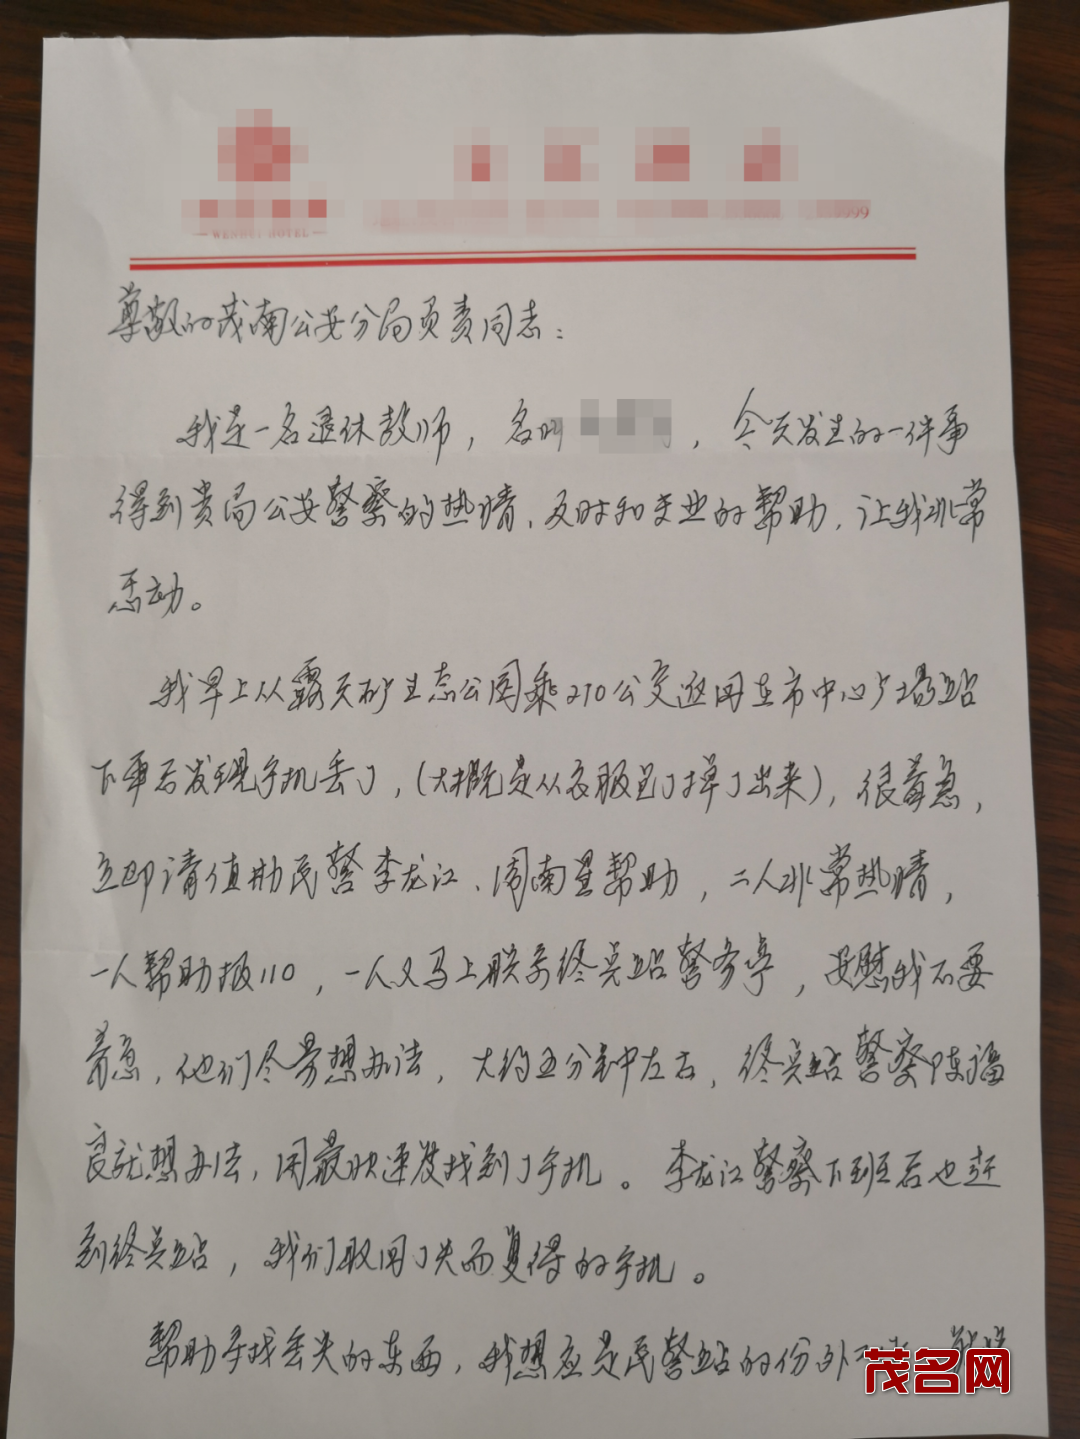 WENHUI HOTEL
9999
尊敬的茂南公安分局负责同志：
我是一名退休教师，名叫 ，今天发生的一件事
得到贵局公安警察的热情、及时和专业的帮助，让我非常
感动。
我早上从露天矿生态公园乘210公交返回在市中心广场站
下车后发现手机丢了，（大概是从衣服包了掉了出来），很着急，
立即请值勤民警李龙江、周南星帮助，二人非常热情，
一人帮助报110，一人又马上联系终点站警务亭，安慰我不要
着急，他们尽量想办法，大约五分钟左右，终点站警察陈福
良就想办法，用最快速度找到了手机。李龙江警察下班后也赶
到终点站，我们取回了失而复得的手机。
帮助寻找丢失的东西，我想应是民警站的份外
茂名网